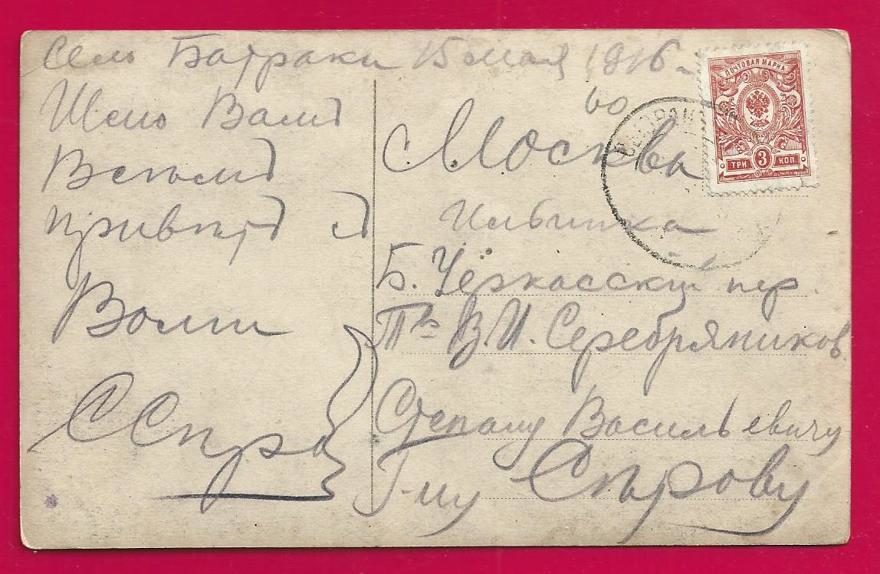 Село Батраки 15 мая 1916 г.
Шлю Вамъ
Всѣмъ
привѣтъ съ
Волги
во
Москва
Ильинка
Б. Черкасский пер.
Т-въ В. И. Серебряников
Степану Васильевичу
Г-ну Сѣрову
ПОЧТОВАЯ МАРКА
ТРИ 3 КОП